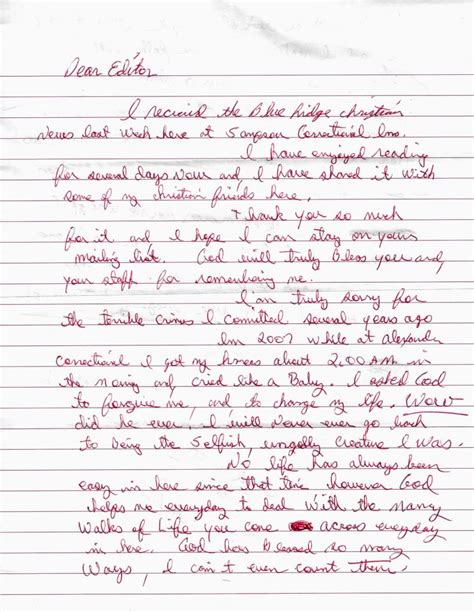 Dear Editor
I recieved the Blue Ridge Christian
News last week here at Sampson Correctional Inn.
I have enjoyed reading
for several days now and I have shared it with
some of my christian friends here.
Thank you so much
for it and I hope I can stay on your
mailing list. God will truly Bless you and,
your staff for remembering me.
I'm truly sorry for
the terrible crimes I committed several years ago
In 2007 while at Alexander
Correctional I got my knees about 2:00 AM in
the morning and cried like a Baby. I asked God
to forgive me, and to change my life. Wow
did he ever. I will never ever go back
to being the selfish, ungodly creature I was.
No life has always been
easy in here since that time however God
helps me everyday to deal with the many
Walks of Life you come across everyday
in here. God has Blessed so many
Ways, I can't even count them.